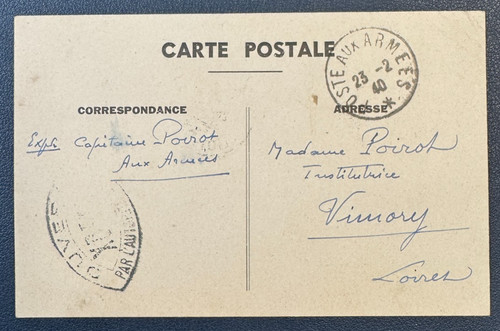 CARTE POSTALE
POSTE AUX ARMEES
23 -2
40
CORRESPONDANCE
ADRESSE
Expr Capitaine Poirot
Aux Armées
Madame Poirot
Institutrice
Vimory
Loiret
OUVERT
PAR L'AUT